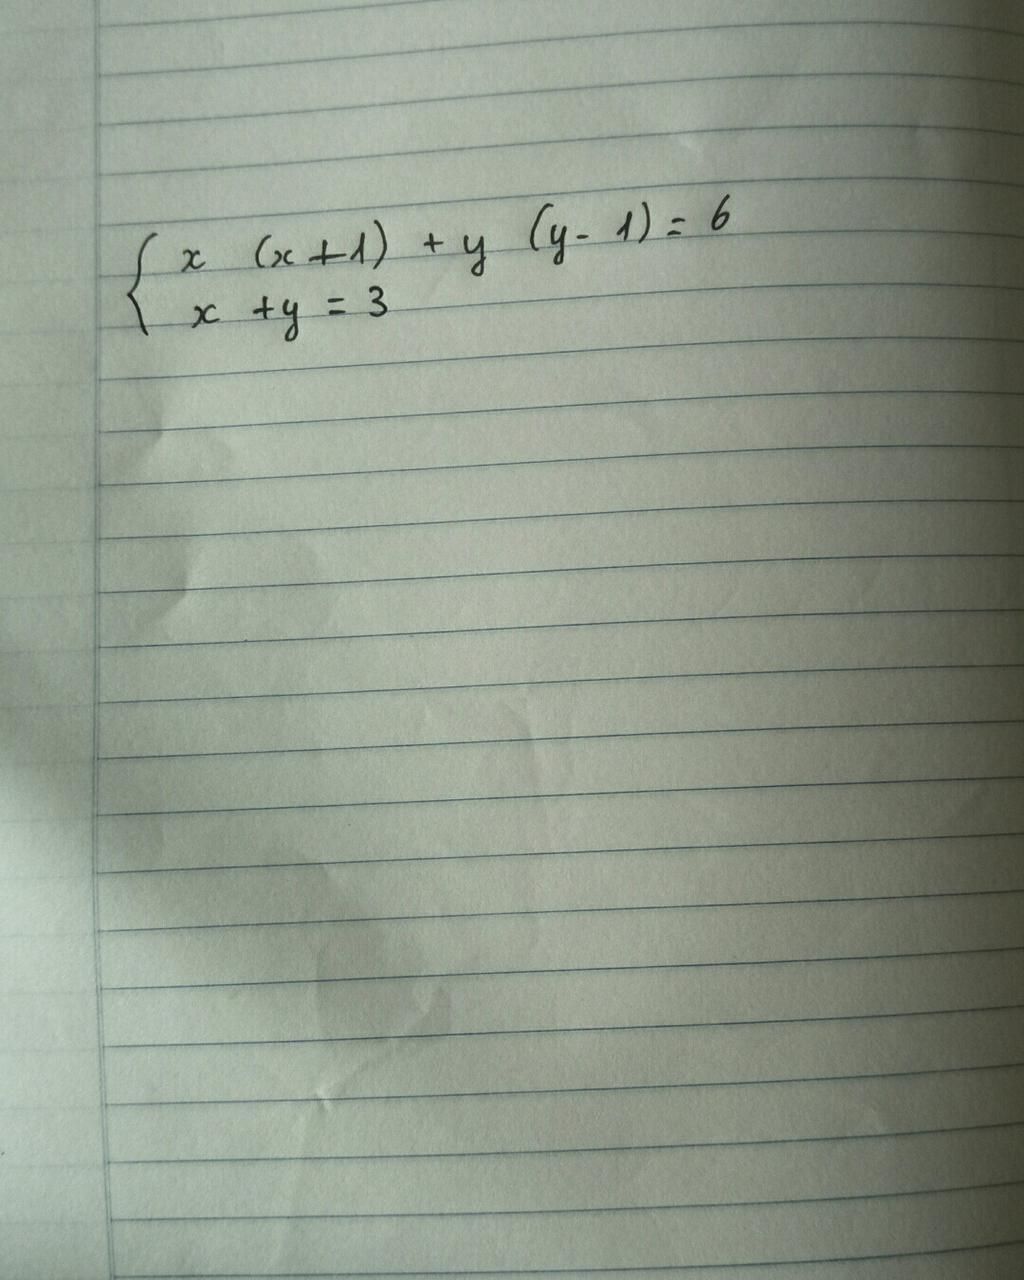 { x (x+1) + y (y-1) = 6
x + y = 3